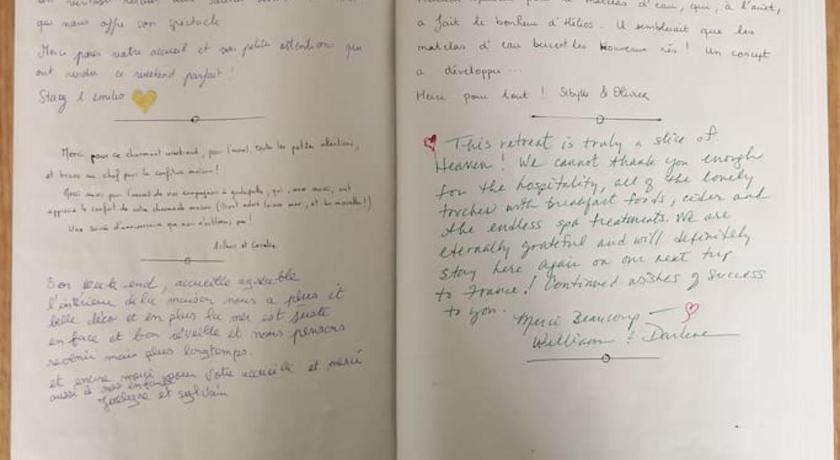 que nous offre son spectacle.
Merci pour votre accueil et vos petites attentions qui
ont rendu ce weekend parfait !
Stacy & Emilio
Merci pour ce charmant week-end, pour l'accueil, toutes les petites attentions,
et bravo au chef pour la confiture maison !
Merci aussi pour l'accueil de nos compagnons à quatre pattes, qui, eux aussi, ont
apprécié le confort de votre charmante maison (ils ont adoré la mer, et les mouettes !)
Une soirée d'anniversaire que nous n'oublierons pas !
Arthur et Coralie.
Bon week-end, accueille agréable
l'intérieure de la maison nous a plus et
belle déco et en plus la mer est juste
en face et bon réveille et nous pensons
revenir mais plus longtemps.
et encore merci pour votre accueille et merci
aussi à
et sylvain
matelas d'eau, qui, à l'août,
a fait le bonheur d'Hélios. Il semblerait que les
matelas d'eau bercent les nouveaux nés ! Un concept
a développer...
Merci pour tout ! Sibylle & Olivier
This retreat is truly a slice of
Heaven! We cannot thank you enough
for the hospitality, all of the lovely
touches with breakfast foods, cider and
the endless spa treatments. We are
eternally grateful and will definitely
stay here again on our next trip
to France! Continued wishes of success
to you. Merci Beaucoup —
William & Darlene